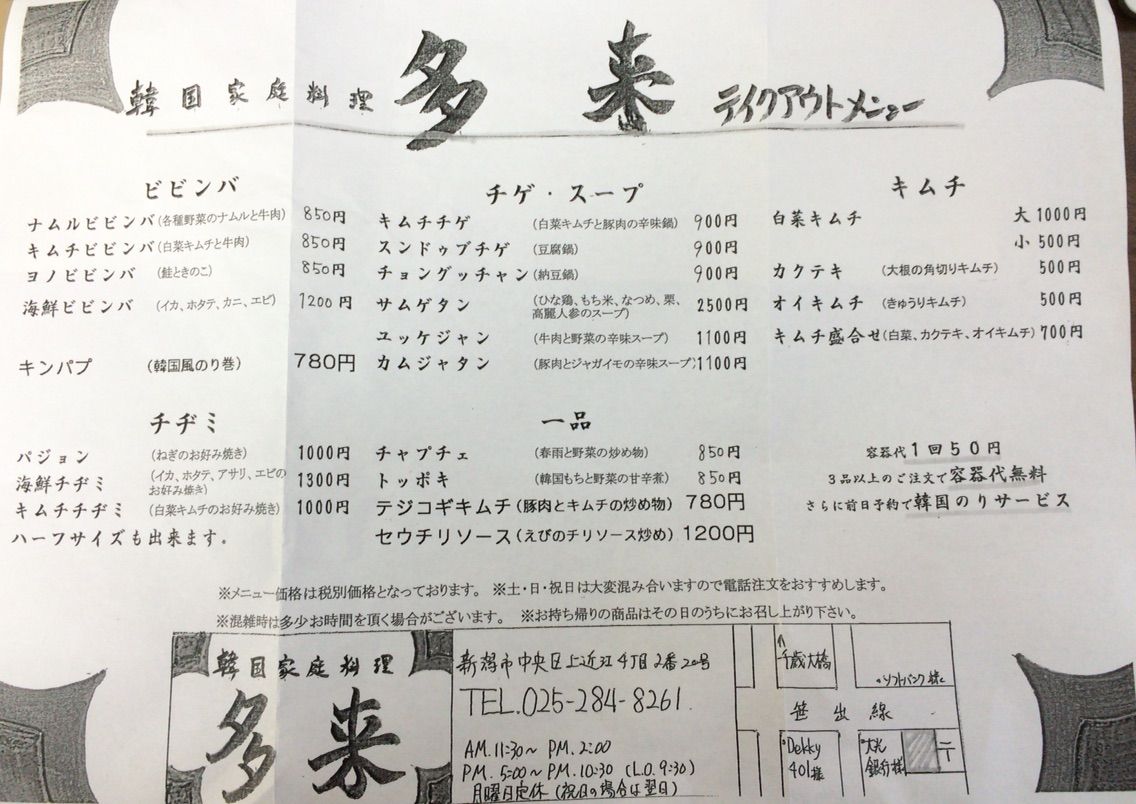 韓国家庭料理 多来 テイクアウトメニュー
ビビンバ
ナムルビビンバ(各種野菜のナムルと牛肉) 850円
キムチビビンバ(白菜キムチと牛肉) 850円
ヨノビビンバ (鮭ときのこ) 850円
海鮮ビビンバ (イカ、ホタテ、カニ、エビ) 1200円
キンパプ (韓国風のり巻) 780円
チゲ・スープ
キムチチゲ (白菜キムチと豚肉の辛味鍋) 900円
スンドゥブチゲ (豆腐鍋) 900円
チョングッチャン(納豆鍋) 900円
サムゲタン (ひな鶏、もち米、なつめ、栗、 2500円
高麗人参のスープ)
ユッケジャン (牛肉と野菜の辛味スープ) 1100円
カムジャタン (豚肉とジャガイモの辛味スープ) 1100円
キムチ
白菜キムチ 大 1000円
小 500円
カクテキ (大根の角切りキムチ) 500円
オイキムチ (きゅうりキムチ) 500円
キムチ盛合せ(白菜、カクテキ、オイキムチ) 700円
チヂミ
パジョン (ねぎのお好み焼き) 1000円
海鮮チヂミ (イカ、ホタテ、アサリ、エビの 1300円
お好み焼き)
キムチチヂミ (白菜キムチのお好み焼き) 1000円
ハーフサイズも出来ます。
一品
チャプチェ (春雨と野菜の炒め物) 850円
トッポキ (韓国もちと野菜の甘辛煮) 850円
テジコギキムチ(豚肉とキムチの炒め物) 780円
セウチリソース(えびのチリソース炒め) 1200円
容器代1回50円
3品以上のご注文で容器代無料
さらに前日予約で韓国のりサービス
※メニュー価格は税別価格となっております。 ※土・日・祝日は大変混み合いますので電話注文をおすすめします。
※混雑時は多少お時間を頂く場合がございます。 ※お持ち帰りの商品はその日のうちにお召し上がり下さい。
韓国家庭料理
多来
新潟市中央区上近江4丁目2番20号
TEL.025-284-8261.
AM.11:30~ PM.2:00
PM.5:00~PM.10:30 (L.O.9:30)
月曜日定休 (祝日の場合は翌日)
千歳大橋
ソフトバンク様
笹出線
Dekky
401様
大光
銀行様
〒